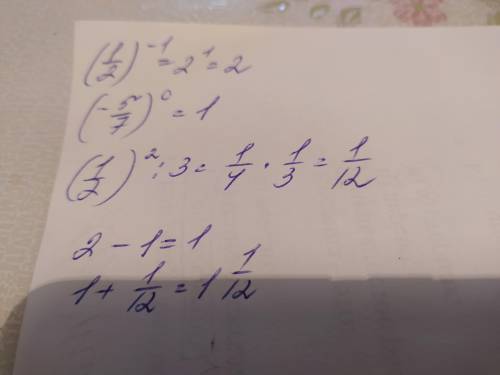 (1/2)^-1 = 2^1 = 2
(-5/7)^0 = 1
(1/2)^2 : 3 = 1/4 · 1/3 = 1/12
2 - 1 = 1
1 + 1/12 = 1 1/12